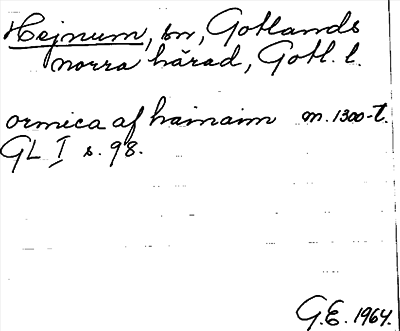 Hejnum, sn, Gotlands
norra härad, Gotl. l.
ormica af hainaim m. 1300-t.
GL I s. 98.
G.E. 1964.